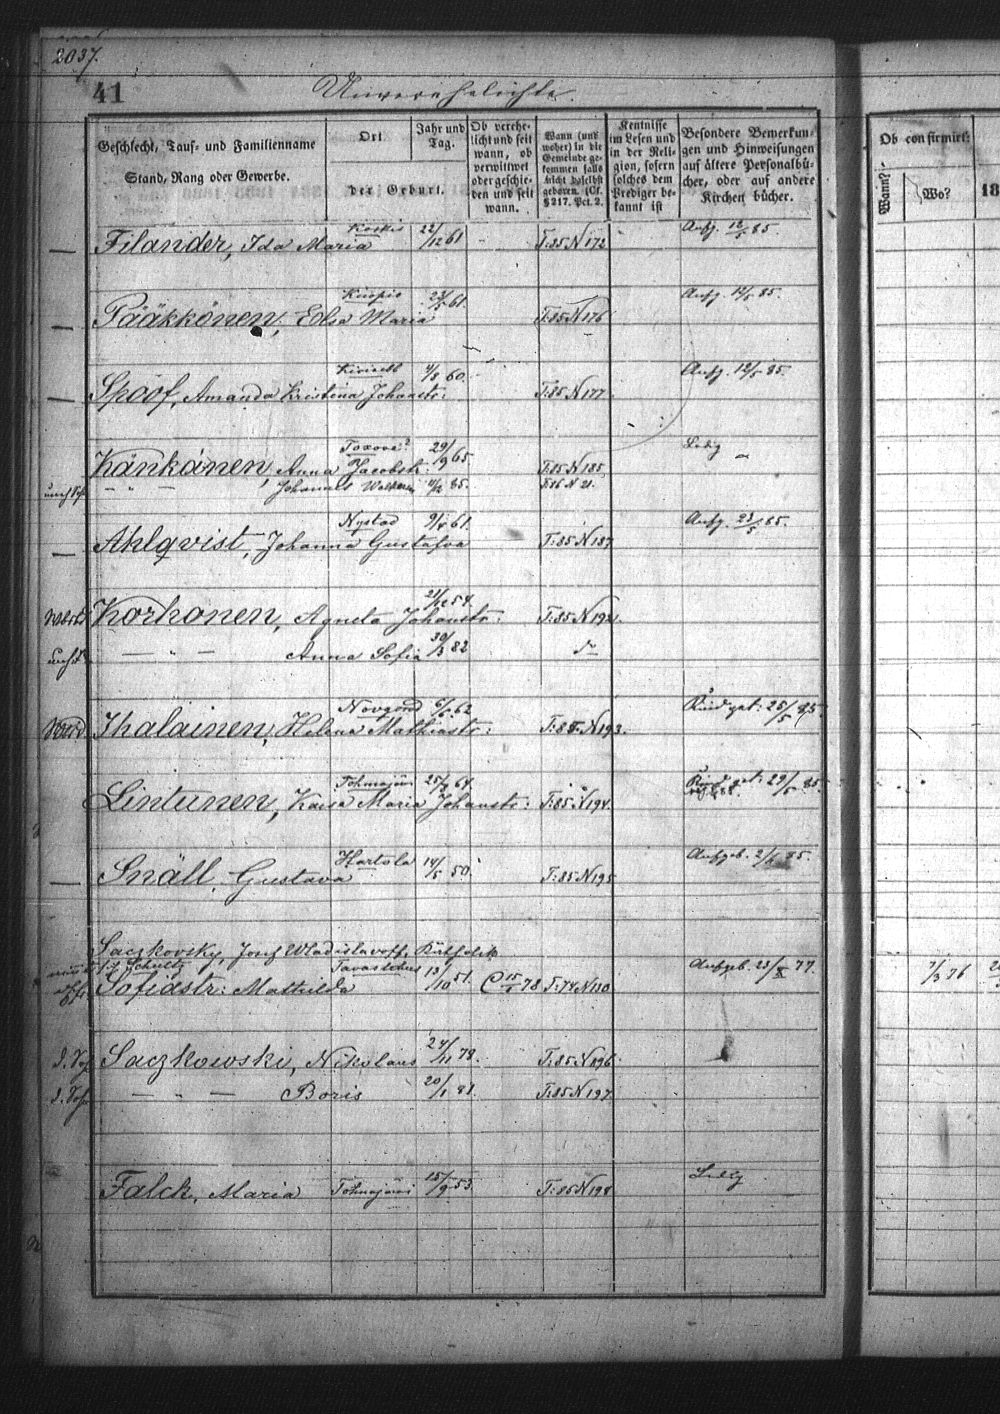 2037.
41 Unverehelichte.
Geschlecht, Tauf- und Familienname
Stand, Rang oder Gewerbe.
Ort
Jahr und Tag.
der Geburt.
Ob verehelicht und seit wann, ob verwittwet oder geschieden und seit wann.
Wann (und woher) in die Gemeinde gekommen falls nicht daselbst geboren. (Cf. § 217. Pct. 2.
Kentnisse im Lesen und in der Religion, sofern solches dem Prediger bekannt ist
Besondere Bemerkungen und Hinweisungen auf ältere Personalbücher, oder auf andere Kirchen bücher.
Ob confirmirt:
Wann?
Wo?
18
— Filander, Ida Maria Koskis 22/12 61 T:85 N 172 Aufg. 12/5 85.
— Pääkkönen, Elsa Maria Kuopio 61. T:85 N 176 Aufg. 12/5 85.
— Spoof, Amanda Kristina Johanstr: 4/8 60. T:85 N 177 Aufg. 12/5 85.
Känkänen, Anna Jacobstr. Toxova? 29/9 65. T:85 N 185 Ledig
— " — Johannes 85. T:86 N 21.
— Ahlqvist, Johanna Gustafva Nystad 9/4 61. T:85 N 187 Aufg. 23/5 85.
Korhonen, Agneta Johanstr: 21/12 54. T:85 N 192.
— " — Anna Sofia 30/3 82
Ihalainen, Helena Mathiastr: Novgorod 6/6 62 T:85 N 193. Kind get: 25/5 85.
Lintunen, Kaisa Maria Johanstr: Tohmajärvi 25/8 64. T:85 N 194. Kind get: 29/5 85.
— Snäll, Gustava Hartola 14/5 50. T:85 N 195 Aufgeb. 2/6 85.
Saczkovsky, Josef Wladislavoff, Katholik
f. Schultz
Sofiastr: Mathilda Tavastehus 13/10 51. C 15/1 78 T:74 N 130 Aufgeb. 23/X 77. 7/3 76
Saczkowski, Nikolaus 24/11 78. T:85 N 196.
— " — Boris 20/1 81. T:85 N 197.
Falck, Maria Tohmajärvi 15/9 53. T:85 N 198